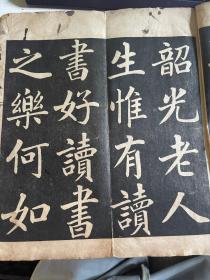 韶光老人
生惟有讀
書好讀書
之樂何如